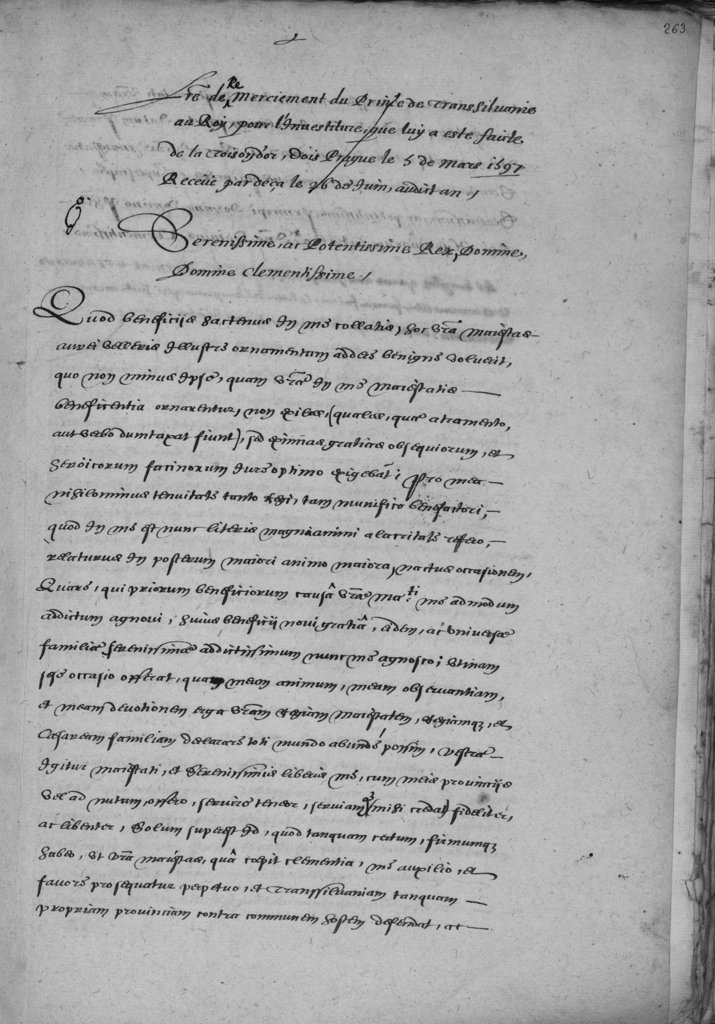 263
Lre de Remerciement du Prince de Transsilvanie
au Roy, pour l'Investiture, que luy a este faicte
de la Toison d'or, dois Prague le 5 de Mars 1597
Receue par deça le 26 de Juin, audit an /
Serenissime, ac Potentissime Rex, Domine,
Domine Clementissime /
Quod beneficijs hactenus in me collatis, hoc Vra Maiestas
aurei Velleris illustre ornamentum addere benigne voluerit,
quo non minus ipse, quam Vrae in me Maiestatis
beneficentia ornarentur, non exiles, (quales, quae atramento,
aut verbo dumtaxat fiunt), sed eximias gratias obsequiorum, et
heroicorum facinorum iure optimo exigebat; Pro mea
nihilominus tenuitate tanto Regi, tam munifico benefactori,
quod in me est nunc literis magni animi alacritate refero,
relaturus in posterum maiori animo maiora, nactus occasionem,
Quare, qui priorum beneficiorum causâ Vrae Ma:ti me admodum
addictum agnovi, huius beneficij novi gratiâ, eidem, ac Universae
familiae Serenissimae addictissimum nunc me agnosco; Utinam
se occasio offerat, quam meum animum, meam observantiam,
et meam devotionem erga Vram Regiam Maiestatem, Regiamq, et
Caesaream familiam declarare toti mundo abunde possim, Vestrae
Igitur Maiestati, et Serenissimis liberis me, cum meis provincijs
vel ad nutum, offero, servire teneor, serviamq (mihi credat) fideliter,
ac libenter, Solum superest id, quod tanquam certum, firmumq
habeo, ut Vra Maiestas, quâ coepit clementia, me auxilio, et
favore prosequatur perpetuo, et Transsilvaniam tanquam
propriam provinciam contra communem hostem defendat, ac